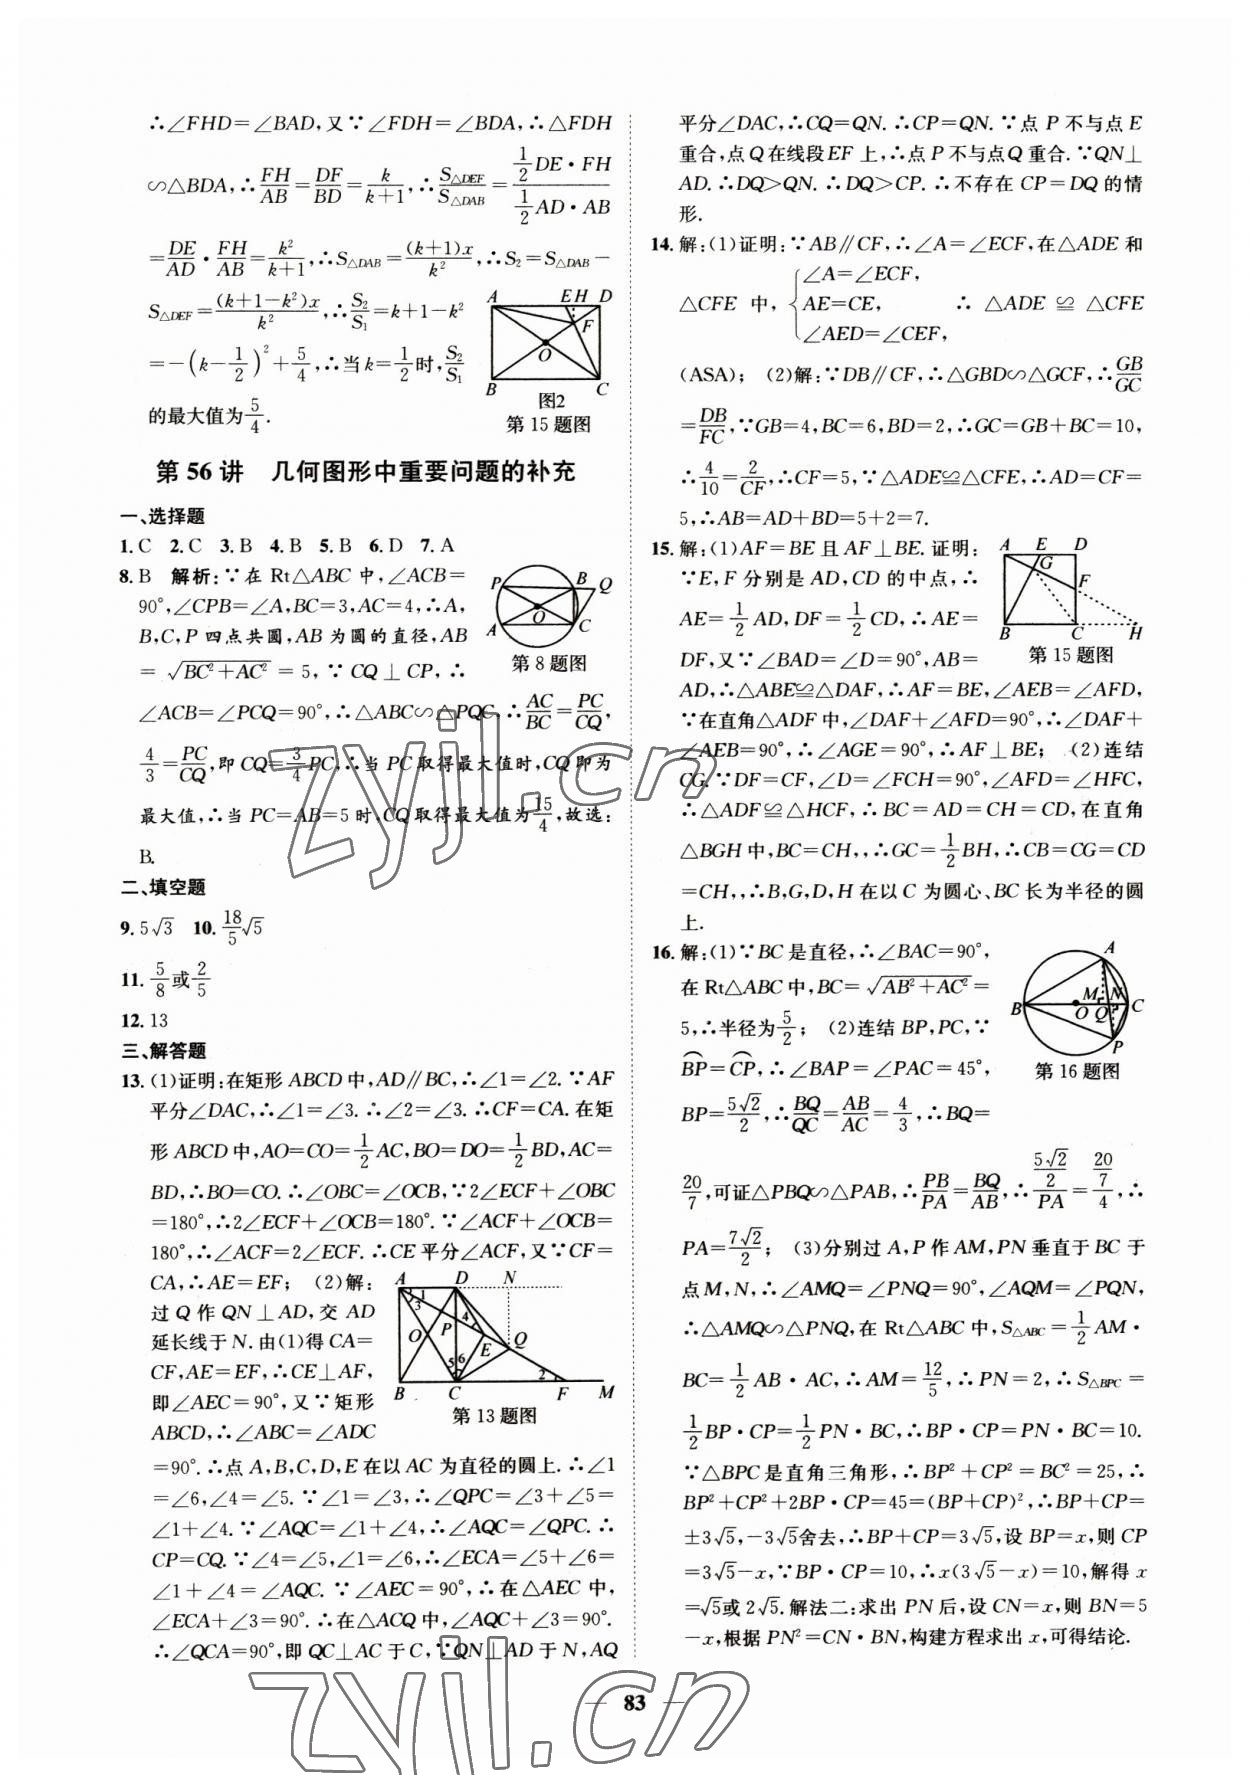 ∴∠FHD=∠BAD,又∵∠FDH=∠BDA,∴△FDH
∽△BDA,∴FH/AB=DF/BD=k/(k+1),∴S△DEF/S△DAB=(1/2 DE·FH)/(1/2 AD·AB)
=DE/AD·FH/AB=k²/(k+1),∴S△DAB=(k+1)x/k²,∴S₂=S△DAB-
S△DEF=(k+1-k²)x/k²,∴S₂/S₁=k+1-k²
=-(k-1/2)²+5/4,∴当k=1/2时,S₂/S₁
的最大值为5/4.
A E H D
F
O
B C
图2
第15题图
第56讲 几何图形中重要问题的补充
一、选择题
1.C 2.C 3.B 4.B 5.B 6.D 7.A
8.B 解析:∵在Rt△ABC中,∠ACB=
90°,∠CPB=∠A,BC=3,AC=4,∴A,
B,C,P四点共圆,AB为圆的直径,AB
=√(BC²+AC²)=5,∵CQ⊥CP,∴
∠ACB=∠PCQ=90°,∴△ABC∽△PQC,∴AC/BC=PC/CQ,
4/3=PC/CQ,即CQ=3/4PC,∴当PC取得最大值时,CQ即为
最大值,∴当PC=AB=5时,CQ取得最大值为15/4,故选:
B.
P B Q
O
A C
第8题图
二、填空题
9.5√3 10.18/5√5
11.5/8或2/5
12.13
三、解答题
13.(1)证明:在矩形ABCD中,AD∥BC,∴∠1=∠2.∵AF
平分∠DAC,∴∠1=∠3.∴∠2=∠3.∴CF=CA.在矩
形ABCD中,AO=CO=1/2AC,BO=DO=1/2BD,AC=
BD,∴BO=CO.∴∠OBC=∠OCB,∵2∠ECF+∠OBC
=180°,∴2∠ECF+∠OCB=180°.∵∠ACF+∠OCB=
180°,∴∠ACF=2∠ECF.∴CE平分∠ACF,又∵CF=
CA,∴AE=EF; (2)解:
过Q作QN⊥AD,交AD
延长线于N.由(1)得CA=
CF,AE=EF,∴CE⊥AF,
即∠AEC=90°,又∵矩形
ABCD,∴∠ABC=∠ADC
=90°.∴点A,B,C,D,E在以AC为直径的圆上.∴∠1
=∠6,∠4=∠5.∵∠1=∠3,∴∠QPC=∠3+∠5=
∠1+∠4.∵∠AQC=∠1+∠4,∴∠AQC=∠QPC.∴
CP=CQ.∵∠4=∠5,∠1=∠6,∴∠ECA=∠5+∠6=
∠1+∠4=∠AQC.∵∠AEC=90°,∴在△AEC中,
∠ECA+∠3=90°.∴在△ACQ中,∠AQC+∠3=90°.
∴∠QCA=90°,即QC⊥AC于C,∵QN⊥AD于N,AQ
A D N
1
3
4
O P
E Q
5 6
2
B C F M
第13题图
平分∠DAC,∴CQ=QN.∴CP=QN.∵点P不与点E
重合,点Q在线段EF上,∴点P不与点Q重合.∵QN⊥
AD.∴DQ>QN.∴DQ>CP.∴不存在CP=DQ的情
形.
14.解:(1)证明:∵AB∥CF,∴∠A=∠ECF,在△ADE和
△CFE中,{∠A=∠ECF,
AE=CE,
∠AED=∠CEF,
∴△ADE≌△CFE
(ASA); (2)解:∵DB∥CF,∴△GBD∽△GCF,∴GB/GC
=DB/FC,∵GB=4,BC=6,BD=2,∴GC=GB+BC=10,
∴4/10=2/CF,∴CF=5,∵△ADE≌△CFE,∴AD=CF=
5,∴AB=AD+BD=5+2=7.
15.解:(1)AF=BE且AF⊥BE.证明:
∵E,F分别是AD,CD的中点,∴
AE=1/2AD,DF=1/2CD,∴AE=
DF,又∵∠BAD=∠D=90°,AB=
AD,∴△ABE≌△DAF,∴AF=BE,∠AEB=∠AFD,
∵在直角△ADF中,∠DAF+∠AFD=90°,∴∠DAF+
∠AEB=90°,∴∠AGE=90°,∴AF⊥BE; (2)连结
CG.∵DF=CF,∠D=∠FCH=90°,∠AFD=∠HFC,
∴△ADF≌△HCF,∴BC=AD=CH=CD,在直角
△BGH中,BC=CH,,∴GC=1/2BH,∴CB=CG=CD
=CH,,∴B,G,D,H在以C为圆心、BC长为半径的圆
上.
A E D
G
F
B C H
第15题图
16.解:(1)∵BC是直径,∴∠BAC=90°,
在Rt△ABC中,BC=√(AB²+AC²)=
5,∴半径为5/2; (2)连结BP,PC,∵
BP⌒=CP⌒,∴∠BAP=∠PAC=45°,
BP=5√2/2,∴BQ/QC=AB/AC=4/3,∴BQ=
20/7,可证△PBQ∽△PAB,∴PB/PA=BQ/AB,∴(5√2/2)/PA=(20/7)/4,∴
PA=7√2/2; (3)分别过A,P作AM,PN垂直于BC于
点M,N,∴∠AMQ=∠PNQ=90°,∠AQM=∠PQN,
∴△AMQ∽△PNQ,在Rt△ABC中,S△ABC=1/2AM·
BC=1/2AB·AC,∴AM=12/5,∴PN=2,∴S△BPC=
1/2BP·CP=1/2PN·BC,∴BP·CP=PN·BC=10.
∵△BPC是直角三角形,∴BP²+CP²=BC²=25,∴
BP²+CP²+2BP·CP=45=(BP+CP)²,∴BP+CP=
±3√5,-3√5舍去,∴BP+CP=3√5,设BP=x,则CP
=3√5-x,∵BP·CP=10,∴x(3√5-x)=10,解得x
=√5或2√5.解法二:求出PN后,设CN=x,则BN=5
-x,根据PN²=CN·BN,构建方程求出x,可得结论.
A
M N
B O Q C
P
第16题图
83
zyjl.cn
zyjl.cn